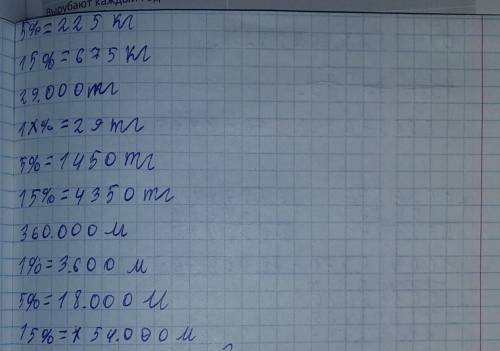 вырубают каждый
5%=225 кг
15%=675 кг
29.000тг
1%=29тг
5%=1450тг
15%=4350тг
360.000 м
1%=3.600 м
5%=18.000 м
15%=54.000м